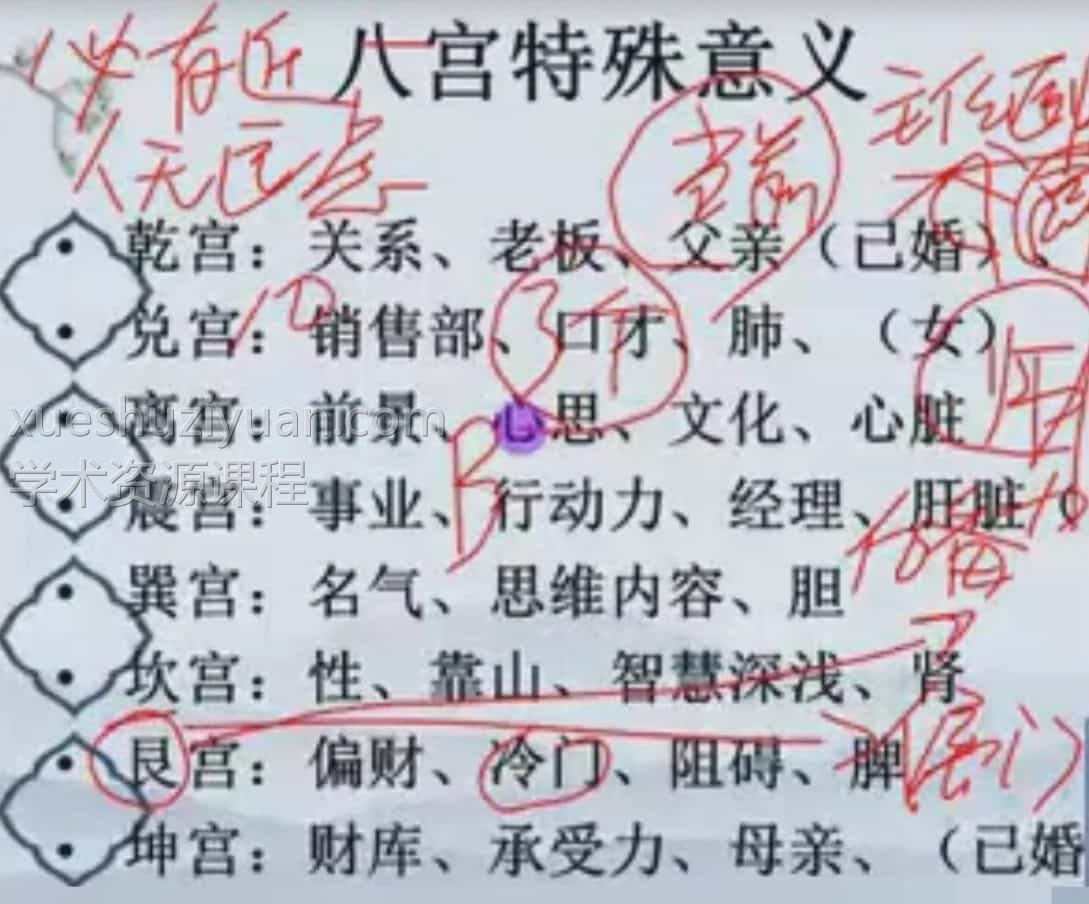 八宫特殊意义
必有近
人无远虑
当前
乾宫：关系、老板、父亲（已婚）、
兑宫：销售部、口才、肺、（女）
离宫：前景、心思、文化、心脏
xueshuziyuan.com
学术资源课程
震宫：事业、行动力、经理、肝脏（
巽宫：名气、思维内容、胆
坎宫：性、靠山、智慧深浅、肾
艮宫：偏财、冷门、阻碍、脾
坤宫：财库、承受力、母亲、（已婚